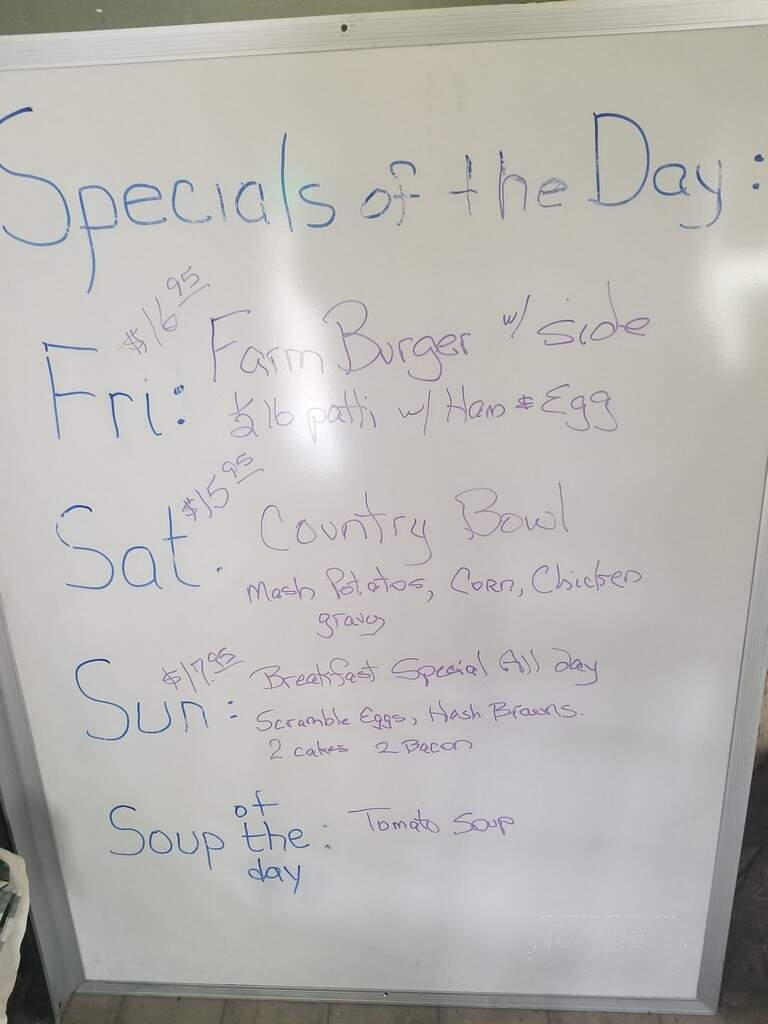 Specials of the Day:
$16.95
Fri: Farm Burger w/ side
1/2 lb patti w/ Ham & Egg
$15.95
Sat. Country Bowl
Mash Potatos, Corn, Chicken
gravy
$17.95
Sun: Breakfast Special All day
Scramble Eggs, Hash Browns.
2 cakes 2 Bacon
Soup of the day: Tomato Soup